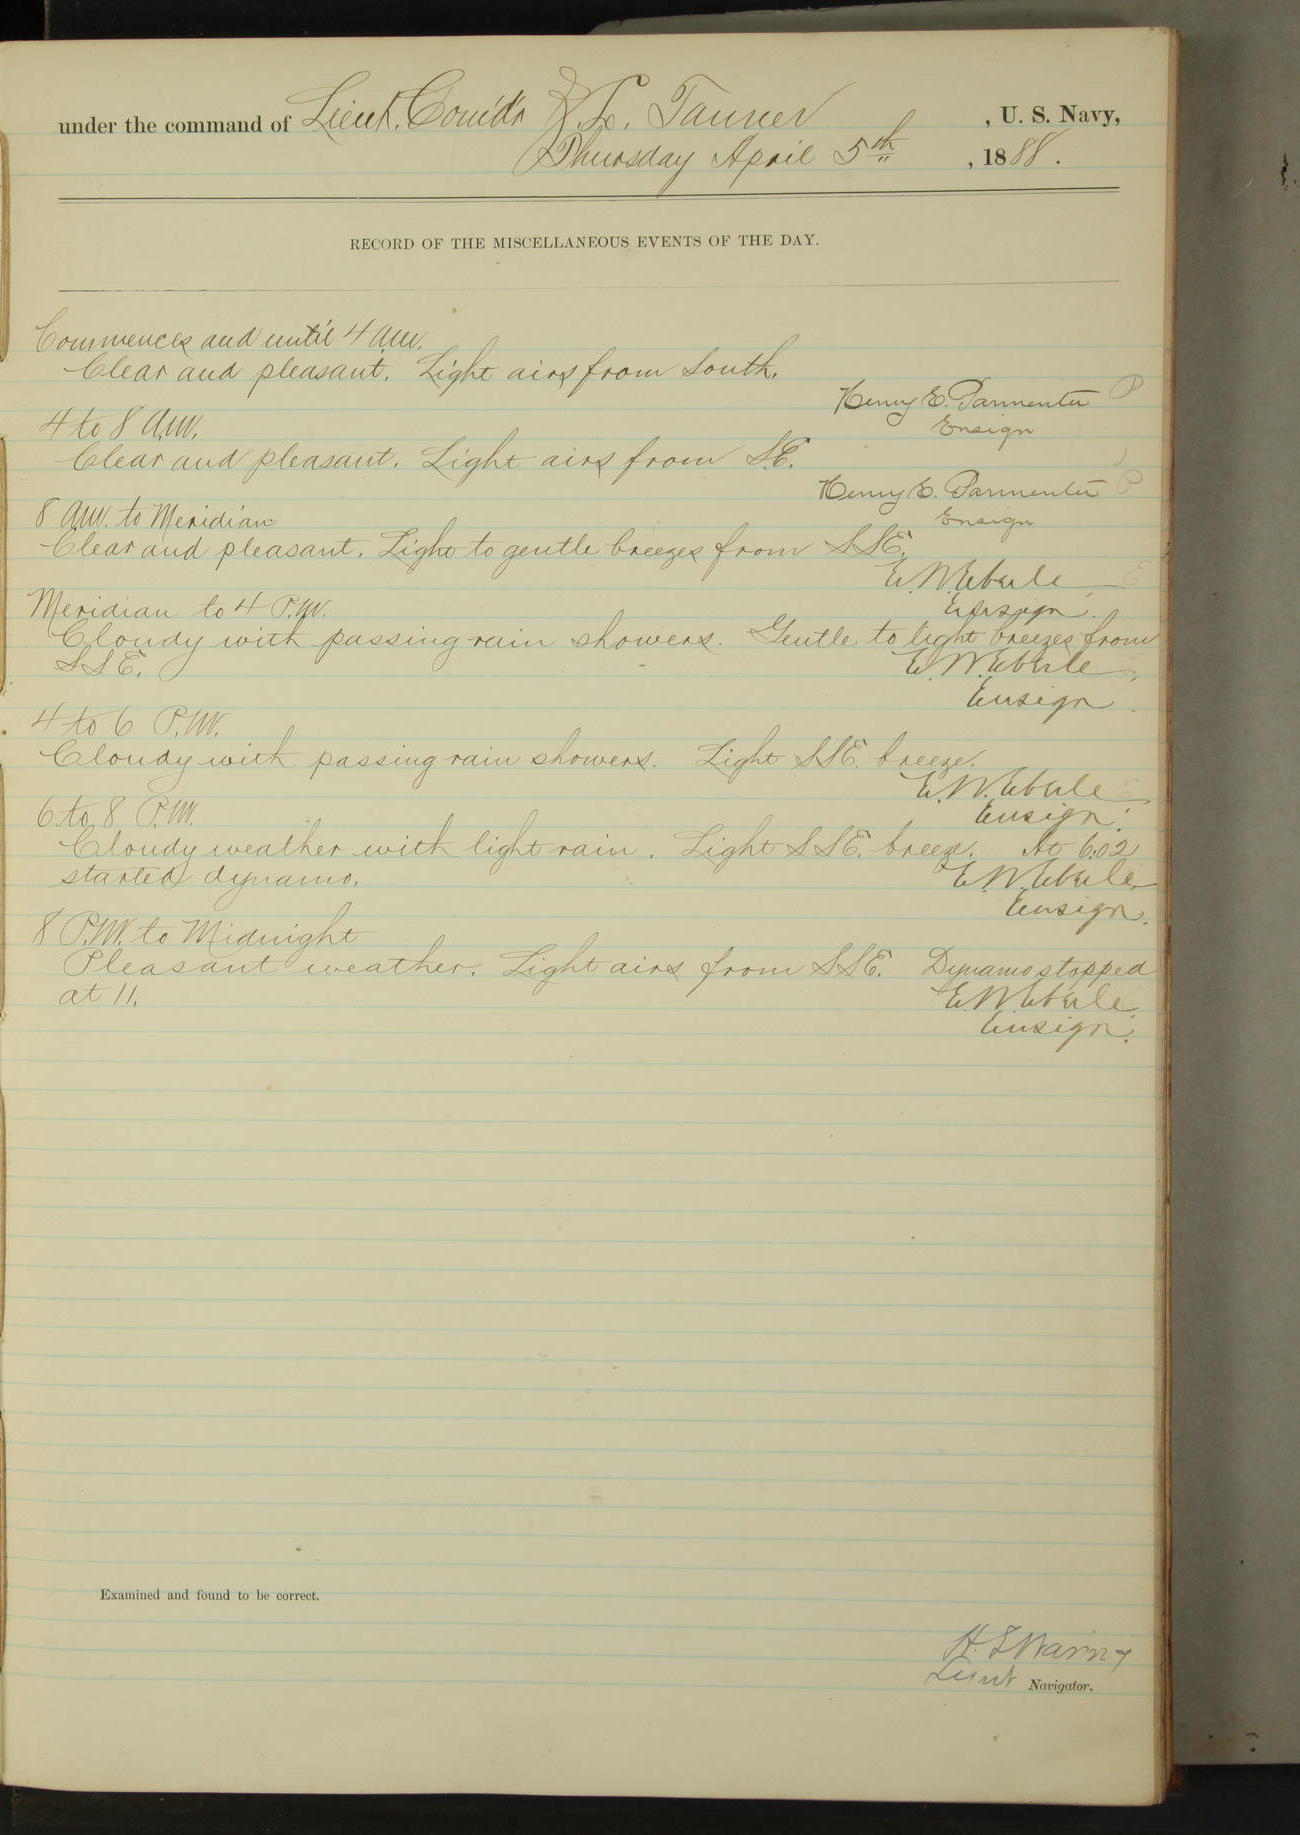 under the command of Lieut. Comd'r Z. L. Tanner, U. S. Navy,
Thursday April 5th, 1888.
RECORD OF THE MISCELLANEOUS EVENTS OF THE DAY.
Commences and until 4 a.m.
Clear and pleasant. Light airs from South.
Henry E. Parmenter P
Ensign
4 to 8 A.M.
Clear and pleasant. Light airs from S.E.
Henry E. Parmenter P
Ensign
8 A.M. to Meridian
Clear and pleasant. Light to gentle breezes from SSE.
E. W. Eberle E
Ensign.
Meridian to 4 P.M.
Cloudy with passing rain showers. Gentle to light breezes from
SSE.
E. W. Eberle,
Ensign.
4 to 6 P.M.
Cloudy with passing rain showers. Light SSE. breeze.
E. W. Eberle
Ensign.
6 to 8 P.M.
Cloudy weather with light rain. Light SSE. breeze. At 6:02
started dynamo.
E. W. Eberle
Ensign.
8 P.M. to Midnight
Pleasant weather. Light airs from SSE. Dynamo stopped
at 11.
E. W. Eberle,
Ensign.
Examined and found to be correct.
H. S. Waring
Lieut Navigator.